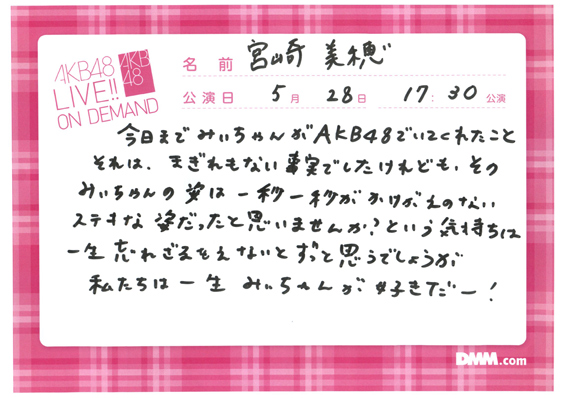 AKB48
LIVE!!
ON DEMAND
AKB
48
名前 宮崎 美穂
公演日 5月 28日 17:30公演
今日までみぃちゃんがAKB48でいてくれたこと
それは、まぎれもない事実でしたけれども、その
みぃちゃんの姿は一秒一秒がかけがえのない
ステキな姿だったと思いませんか?という気持ちは
一生忘れざるをえないとずっと思うでしょうが
私たちは一生みぃちゃんが好きだー!
DMM.com